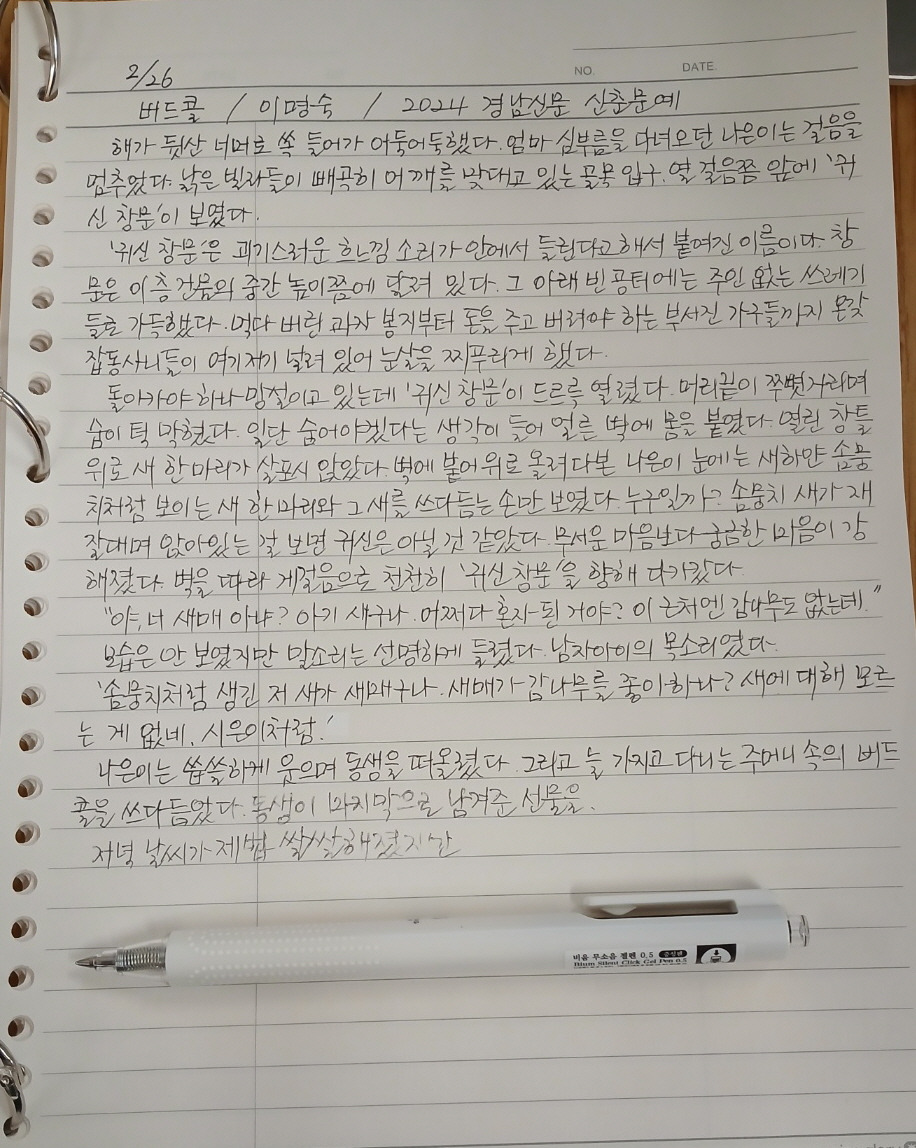 NO. DATE.
2/26
버드콜 / 이명숙 / 2024 경남신문 신춘문예
해가 뒷산 너머로 쏙 들어가 어둑어둑했다. 엄마 심부름을 다녀오던 나은이는 걸음을
멈추었다. 낡은 빌라들이 빼곡히 어깨를 맞대고 있는 골목 입구. 열 걸음쯤 앞에 '귀
신 창문'이 보였다.
'귀신 창문'은 괴기스러운 흐느낌 소리가 안에서 들린다고 해서 붙여진 이름이다. 창
문은 이층 건물의 중간 높이쯤에 달려 있다. 그 아래 빈 공터에는 주인 없는 쓰레기
들로 가득했다. 먹다 버린 과자 봉지부터 돈을 주고 버려야 하는 부서진 가구들까지 온갖
잡동사니들이 여기저기 널려 있어 눈살을 찌푸리게 했다.
돌아가야 하나 망설이고 있는데 '귀신 창문'이 드르륵 열렸다. 머리끝이 쭈뼛거리며
숨이 턱 막혔다. 일단 숨어야겠다는 생각이 들어 얼른 벽에 몸을 붙였다. 열린 창틀
위로 새 한 마리가 살포시 앉았다. 벽에 붙어 위로 올려다본 나은이 눈에는 새하얀 솜뭉
치처럼 보이는 새 한 마리와 그 새를 쓰다듬는 손만 보였다. 누구일까? 솜뭉치 새가 재
잘대며 앉아있는 걸 보면 귀신은 아닐 것 같았다. 무서운 마음보다 궁금한 마음이 강
해졌다. 벽을 따라 게걸음으로 천천히 '귀신 창문'을 향해 다가갔다
"야, 너 새매 아냐? 아기 새구나. 어쩌다 혼자 된 거야? 이 근처엔 감나무도 없는데."
모습은 안 보였지만 말소리는 선명하게 들렸다. 남자아이의 목소리였다.
'솜뭉치처럼 생긴 저 새가 새매구나. 새매가 감나무를 좋아하나? 새에 대해 모르
는 게 없네. 시은이처럼.'
나은이는 씁쓸하게 웃으며 동생을 떠올렸다. 그리고 늘 가지고 다니는 주머니 속의 버드
콜을 쓰다듬었다. 동생이 마지막으로 남겨준 선물을.
저녁 날씨가 제법 쌀쌀해졌지만
비움 무소음 젤펜 0.5
Bium Silent Click Gel Pen 0.5